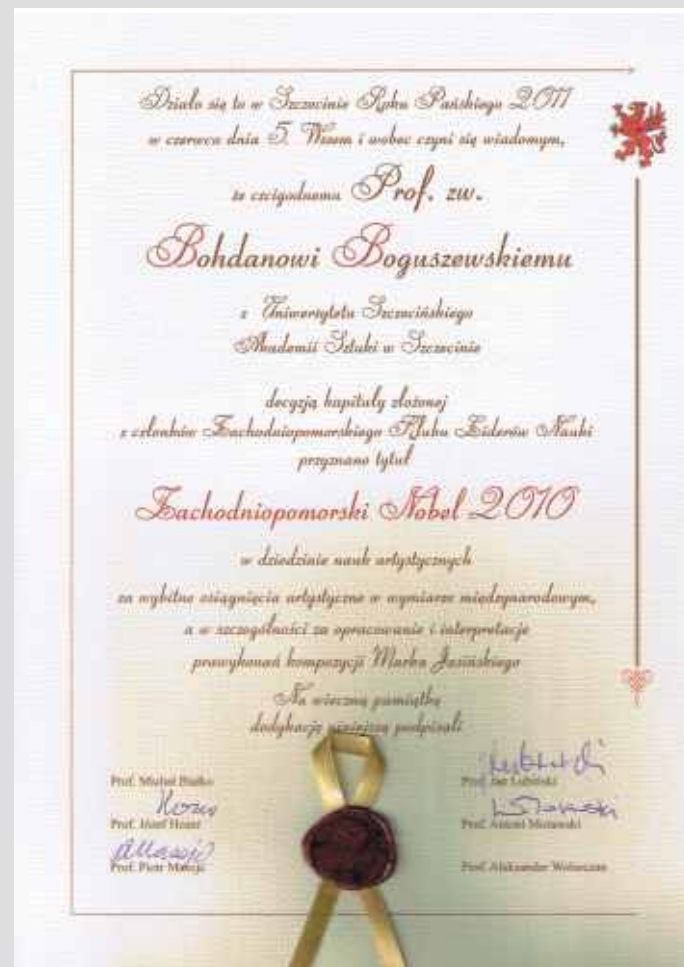 Działo się to w Szczecinie Roku Pańskiego 2011
w czerwcu dnia 5. Wszem i wobec czyni się wiadomym,
że czcigodnemu Prof. zw.
Bohdanowi Boguszewskiemu
z Uniwersytetu Szczecińskiego
Akademii Sztuki w Szczecinie
decyzją kapituły złożonej
z członków Zachodniopomorskiego Klubu Liderów Nauki
przyznano tytuł
Zachodniopomorski Nobel 2010
w dziedzinie nauk artystycznych
za wybitne osiągnięcia artystyczne w wymiarze międzynarodowym,
a w szczególności za opracowanie i interpretacje
prawykonań kompozycji Marka Jasińskiego
Na wieczną pamiątkę
dedykację niniejszą podpisali
Prof. Michał Białko
Prof. Jan Lubiński
Prof. Józef Hozer
Prof. Antoni Morawski
Prof. Piotr Masojć
Prof. Aleksander Wolszczan